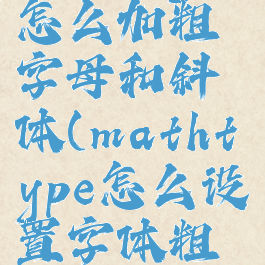 怎么加粗
字母和斜
体(matht
ype怎么设
置字体粗